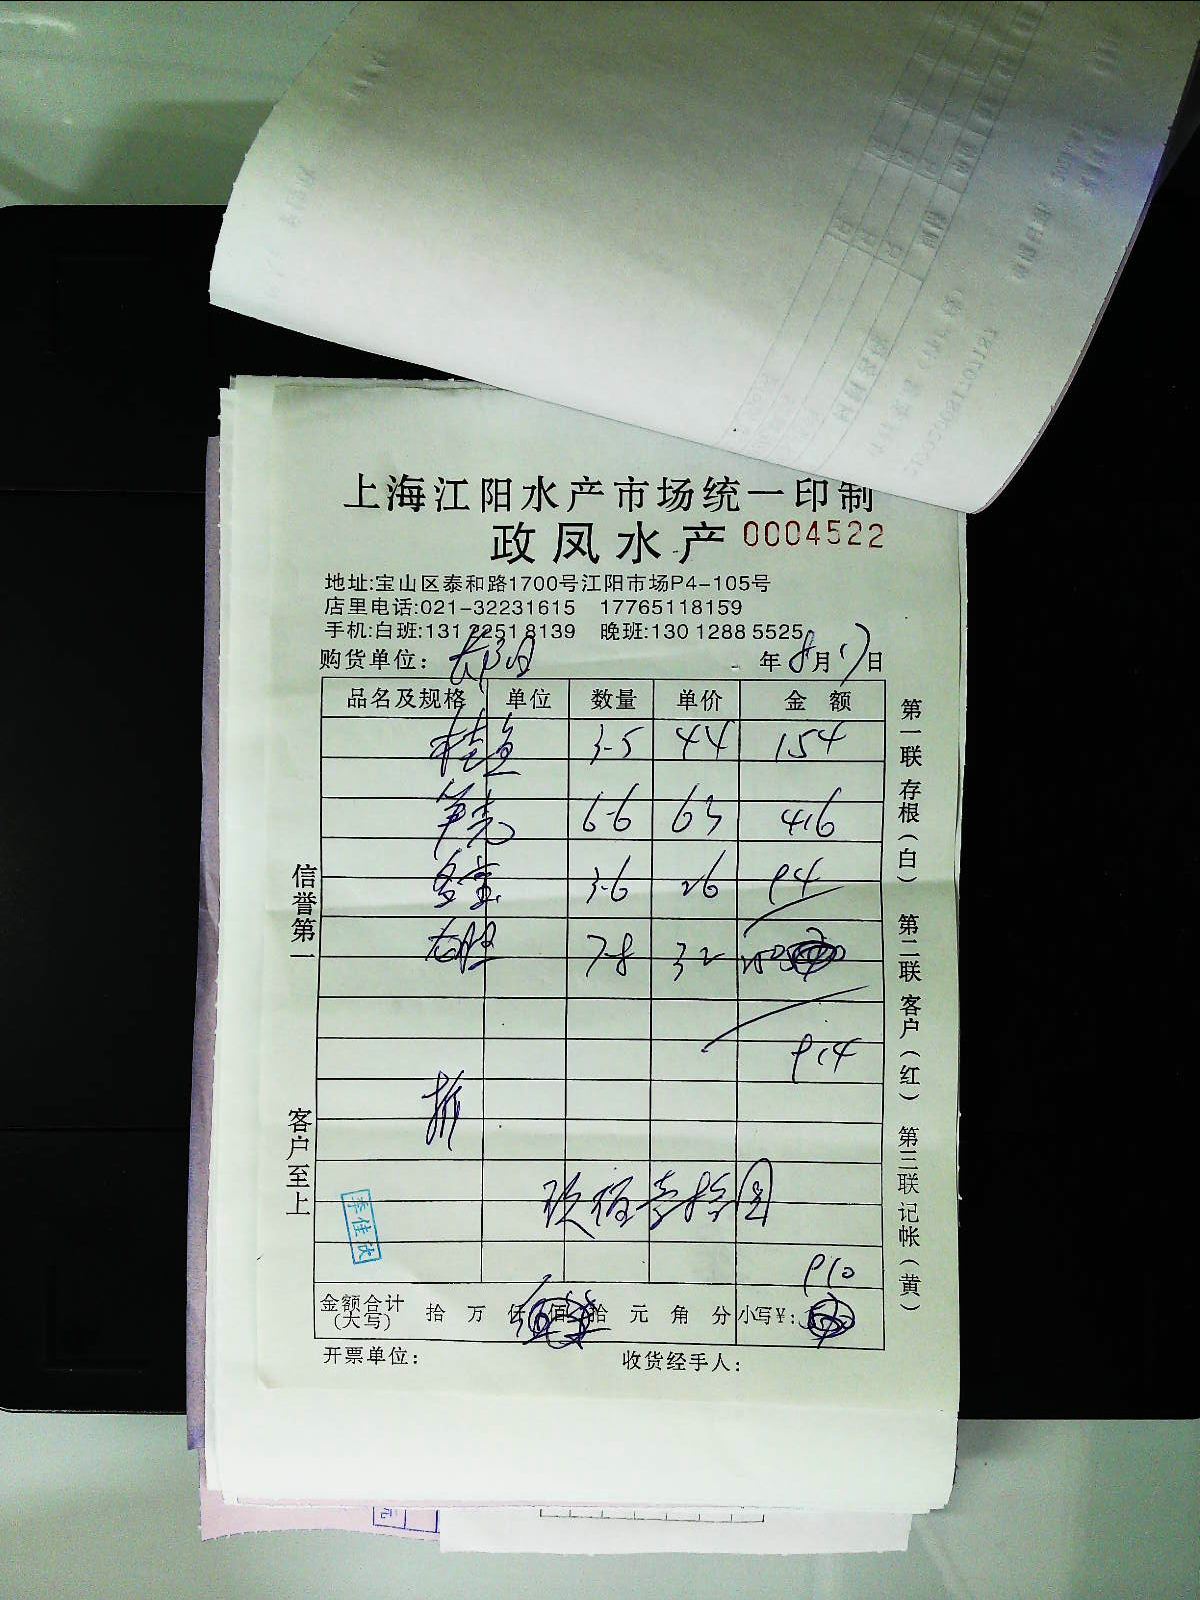 上海江阳水产市场统一印制
政凤水产 0004522
地址:宝山区泰和路1700号江阳市场P4-105号
店里电话:021-32231615 17765118159
手机:白班:131 2251 8139 晚班:130 1288 5525
购货单位: 年8月17日
品名及规格 单位 数量 单价 金额
桂鱼 3-5 44 154
笋壳 6-6 63 416
多宝 3-6 26 94
7-8 32 250
914
折
玖佰壹拾圆
李佳欣
910
金额合计(大写) 拾 万 仟 佰 拾 元 角 分 小写¥:
开票单位: 收货经手人:
信誉第一
客户至上
第一联 存根(白) 第二联 客户(红) 第三联 记帐(黄)